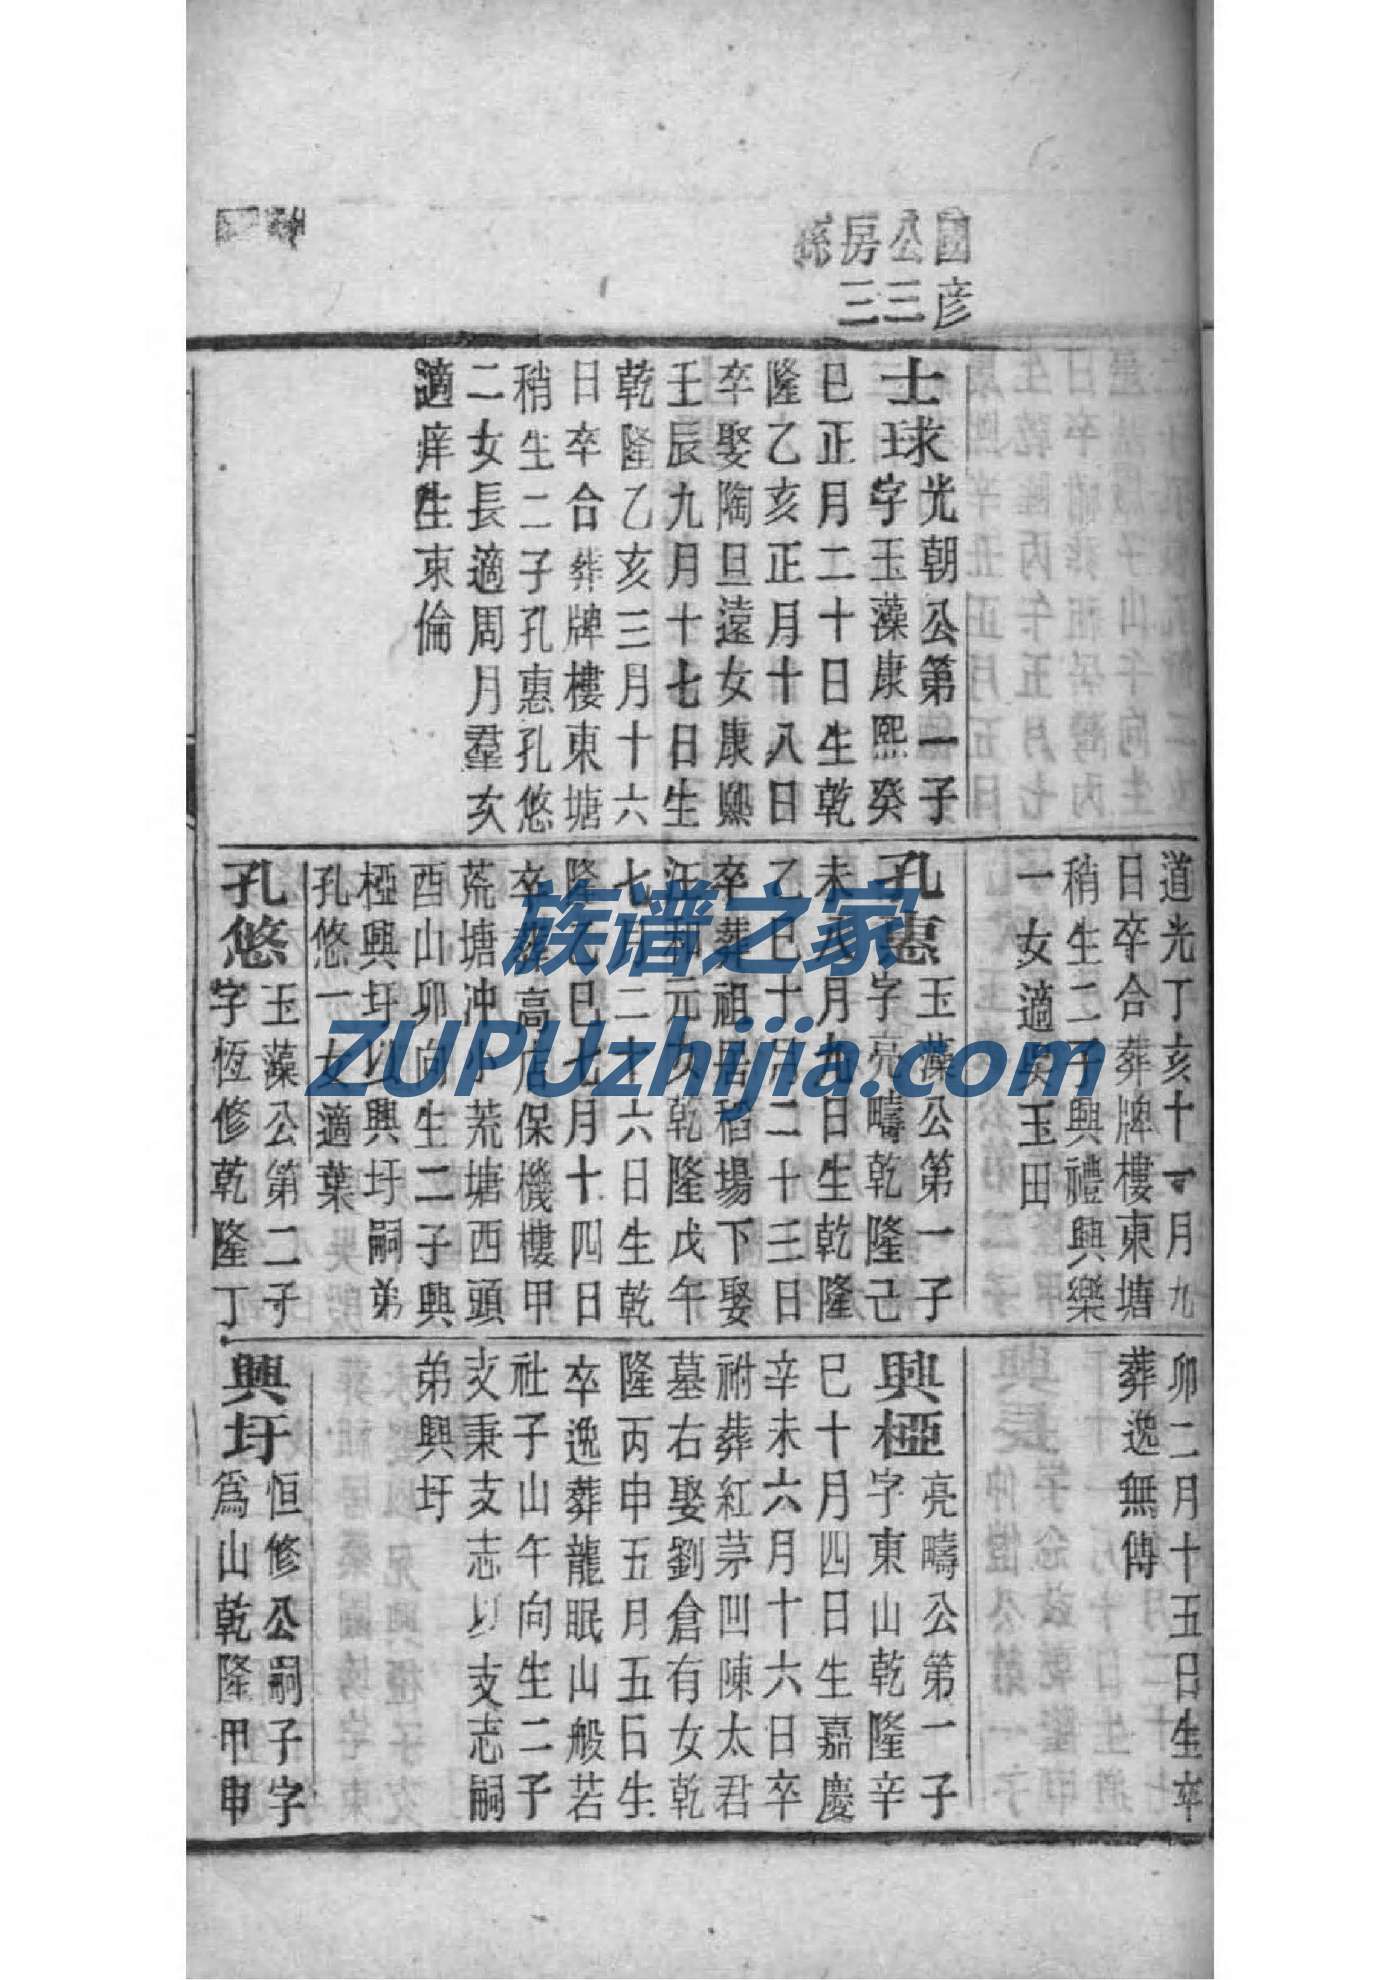 國彥
公三
房三
士球
光朝公第一子
字玉藻康熙癸
巳正月二十日生乾
隆乙亥正月十八日
卒娶陶旦遠女康熙
壬辰九月十七日生
乾隆乙亥三月十六
日卒合葬牌樓東塘
稍生二子孔惠孔悠
二女長適周月羣次
適庠生束倫
道光丁亥十一月九
日卒合葬牌樓東塘
稍生二子興禮興樂
一女適吳玉田
孔惠
玉藻公第一子
字亮疇乾隆己
未八月九日生乾隆
乙巳十月二十三日
卒葬祖居稻場下娶
汪和元女乾隆戊午
七月二十六日生乾
隆乙巳七月十四日
卒葬高店保機樓甲
荒塘冲小荒塘西頭
酉山卯向生二子興
椏興圩以興圩嗣弟
孔悠一女適葉
孔悠
玉藻公第二子
字恆修乾隆丁
卯二月十五日生卒
葬逸無傳
興椏
亮疇公第一子
字東山乾隆辛
巳十月四日生嘉慶
辛未六月十六日卒
祔葬紅茅凹陳太君
墓右娶劉倉有女乾
隆丙申五月五日生
卒逸葬龍眠山般若
社子山午向生二子
支秉支志以支志嗣
弟興圩
興圩
恒修公嗣子字
爲山乾隆甲申
族谱之家
ZUPUzhijia.com